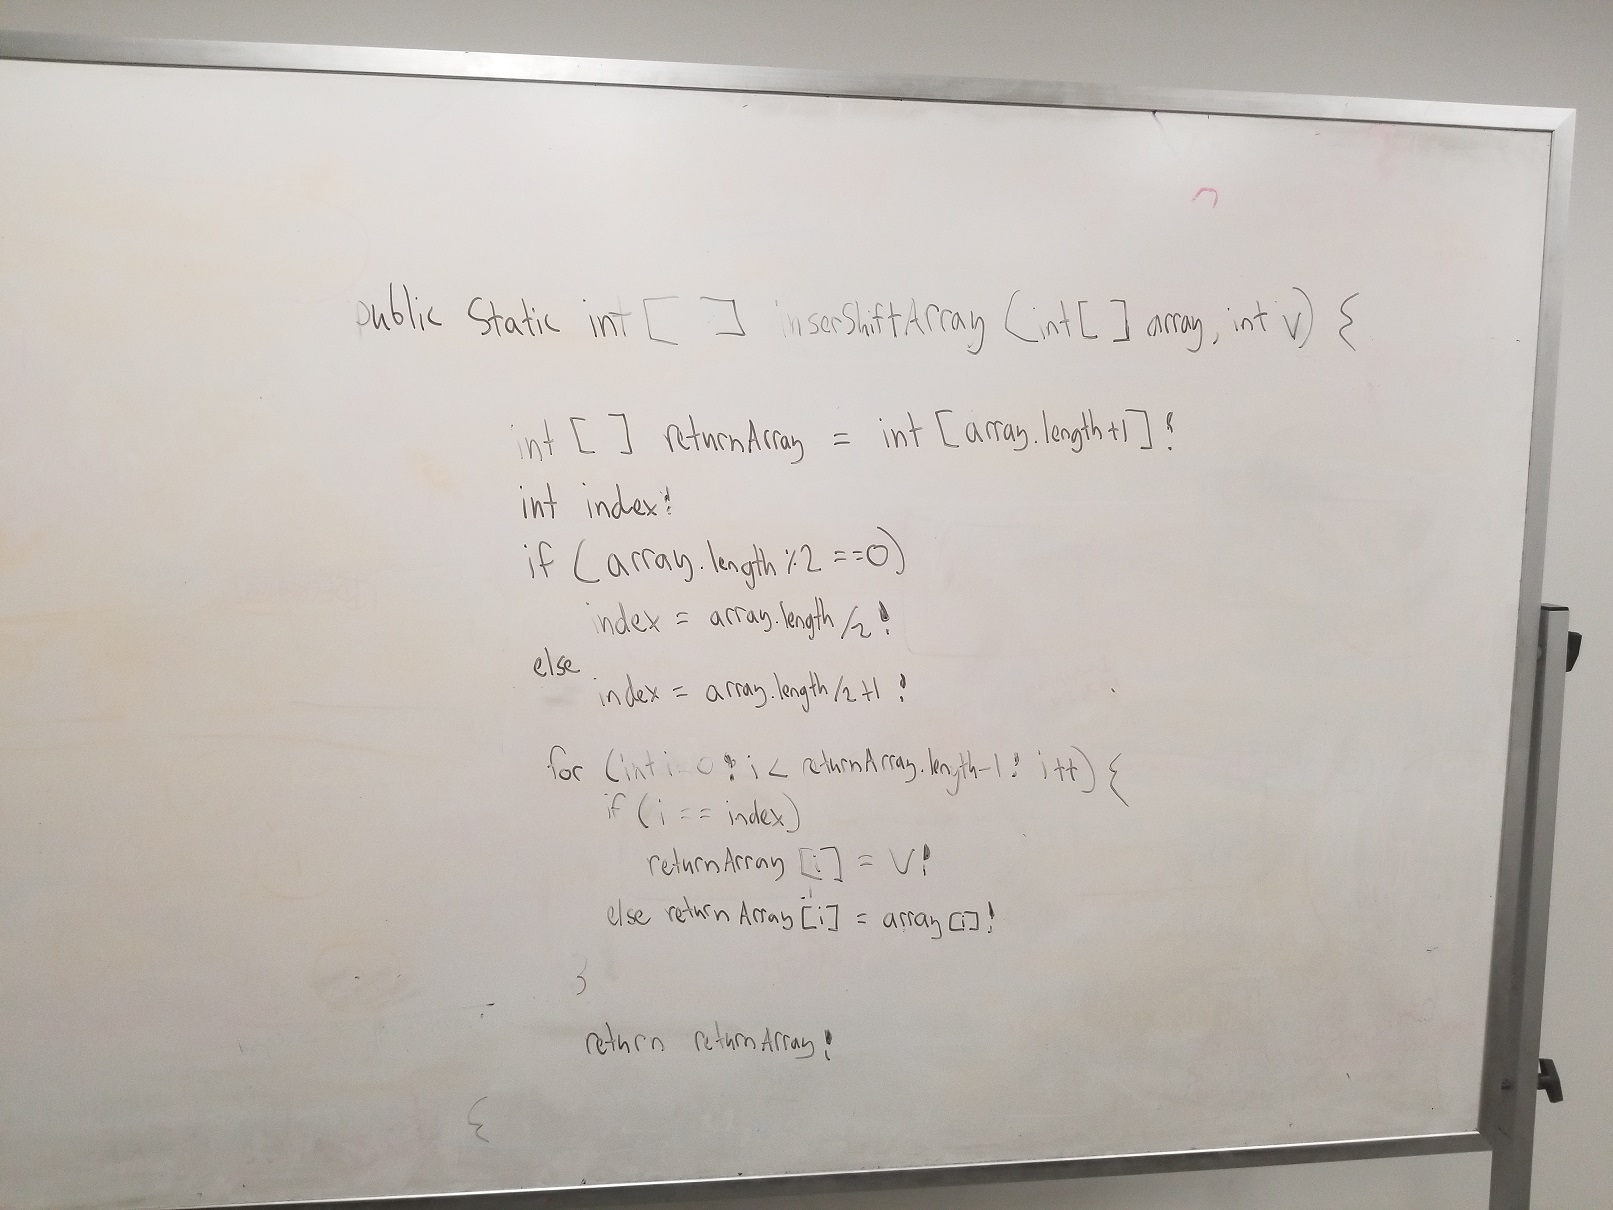 public static int [ ] inserShiftArray (int[ ] array, int v) {
int [ ] returnArray = int [array.length+1];
int index;
if (array.length %2 ==0)
index = array.length /2;
else
index = array.length/2 +1 ;
for (int i=0; i < returnArray.length-1; i++) {
if (i == index)
returnArray [i] = v;
else returnArray[i] = array[i];
}
return returnArray;
{